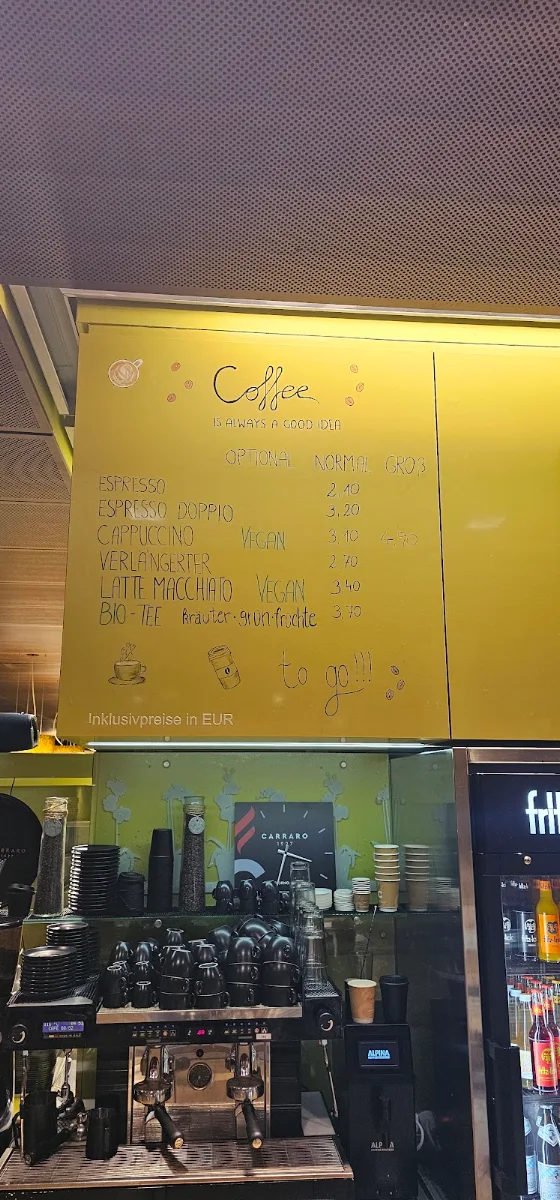 Coffee
IS ALWAYS A GOOD IDEA
OPTIONAL NORMAL GROß
ESPRESSO 2,40
ESPRESSO DOPPIO 3,20
CAPPUCCINO VEGAN 3,10
VERLÄNGERTER 2,70
LATTE MACCHIATO VEGAN 3,40
BIO-TEE Kräuter·grün·früchte 3,70
to go!!!
Inklusivpreise in EUR
CARRARO
1927
ALPINA